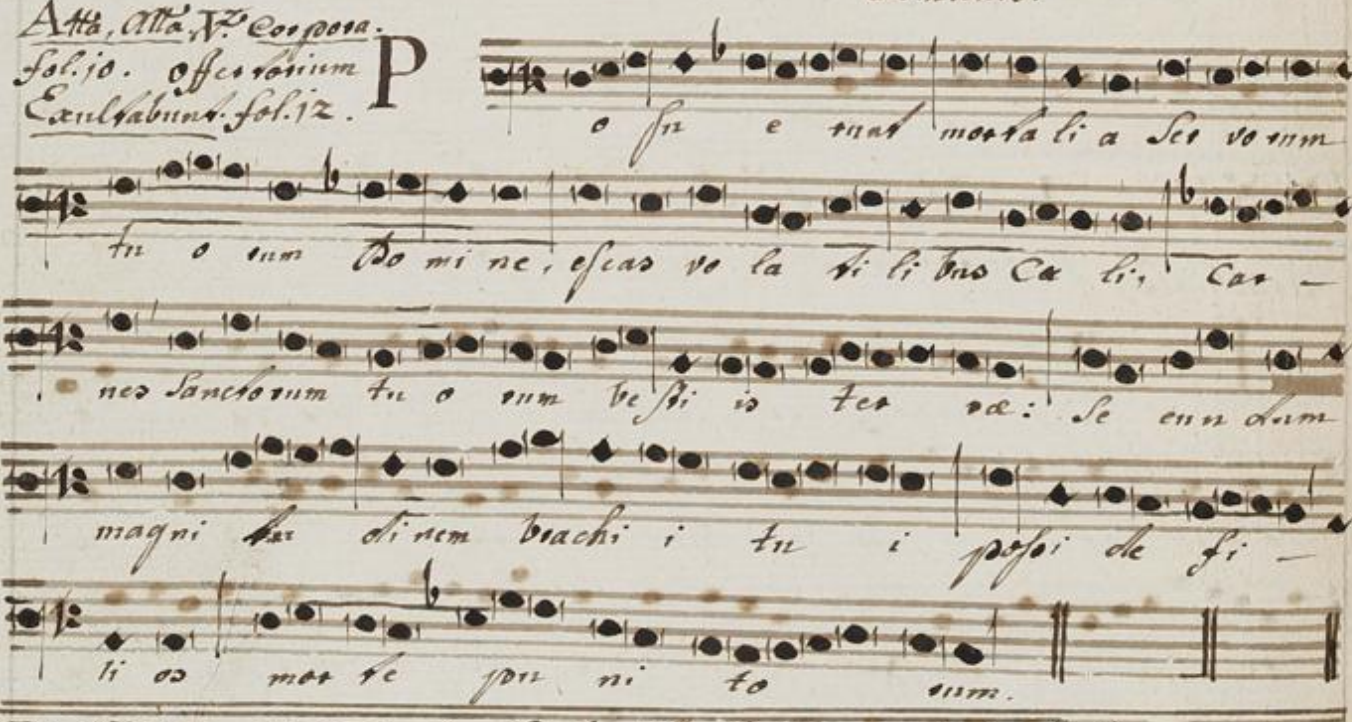 Atta, Atta, V. Corpora.
fol. 10. Offertorium
Exultabunt. fol. 12.
P o su e runt morta li a ser vo rum
tu o rum Do mi ne, escas vo la ti li bus Cæ li, car -
nes sanctorum tu o rum be sti is ter ræ: Se cun dum
magni tu di nem brachi i tu i possi de fi -
li os mor te pu ni to rum.